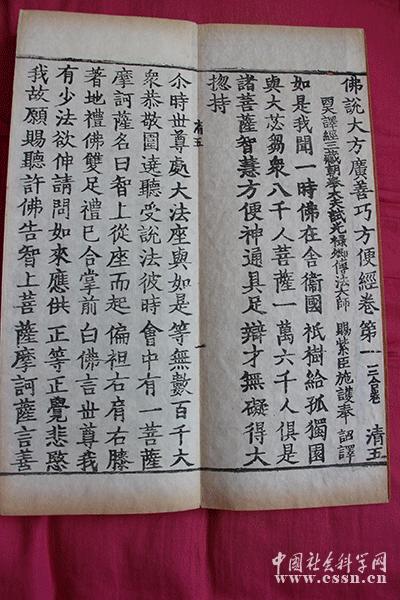 佛說大方廣善巧方便經卷第一 三合卷 清五
西天譯經三藏朝奉大夫試光祿卿傳法大師 賜紫臣施護奉 詔譯
如是我聞一時佛在舍衛國祇樹給孤獨園
與大苾芻衆八千人菩薩一萬六千人俱是
諸菩薩智慧方便神通具足辯才無礙得大
揔持
清五
一
尒時世尊處大法座與如是等無數百千大
衆恭敬圍遶聽受說法彼時會中有一菩薩
摩訶薩名曰智上從座而起偏袒右肩右膝
著地禮佛雙足禮已合掌前白佛言世尊我
有少法欲伸請問如來應供正等正覺悲愍
我故願賜聽許佛告智上菩薩摩訶薩言善
中国社会科学网
www.cssn.cn